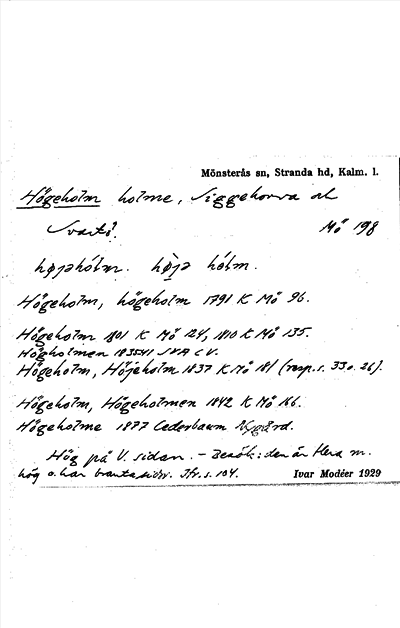 Mönsterås sn, Stranda hd, Kalm. l.
Högeholm holme, Siggehorva ol
Svartö. Mö 198
højəhólm. hø̀jə hólm.
Högeholm, högeholm 1791 K Mö 96.
Högeholm 1801 K Mö 124, 1810 K Mö 135.
Högholmen 1835-41 SKA C V.
Högeholm, Höjeholm 1837 K Mö 181 (resp. s. 33 o. 26).
Högeholm, Högeholmen 1842 K Mö 166.
Högeholme 1877 Cederbaum Nygård.
Hög på V. sidan. – Besök: den är flera m.
hög o. har branta sidor. Jfr. s. 104. Ivar Modéer 1929